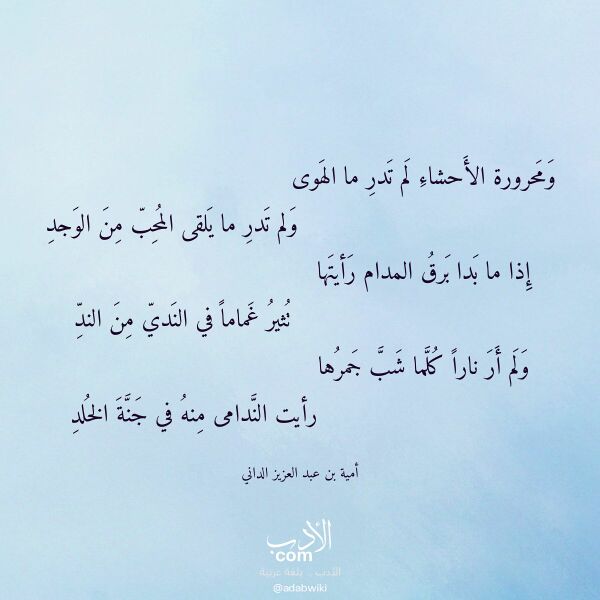 وَمَحرورة الأَحشاءِ لَم تَدرِ ما الهَوى
وَلم تَدرِ ما يَلقى المُحِبّ مِنَ الوَجدِ
إِذا ما بَدا بَرقُ المدام رَأيتَها
تُثيرُ غَماماً في النَديّ مِنَ الندِّ
وَلَم أَرَ ناراً كُلَّما شَبَّ جَمرُها
رأيت النَّدامى مِنهُ في جَنَّةَ الخُلدِ
أمية بن عبد العزيز الداني
الأدب
com
الأدب .. بلغة عربية
@adabwiki